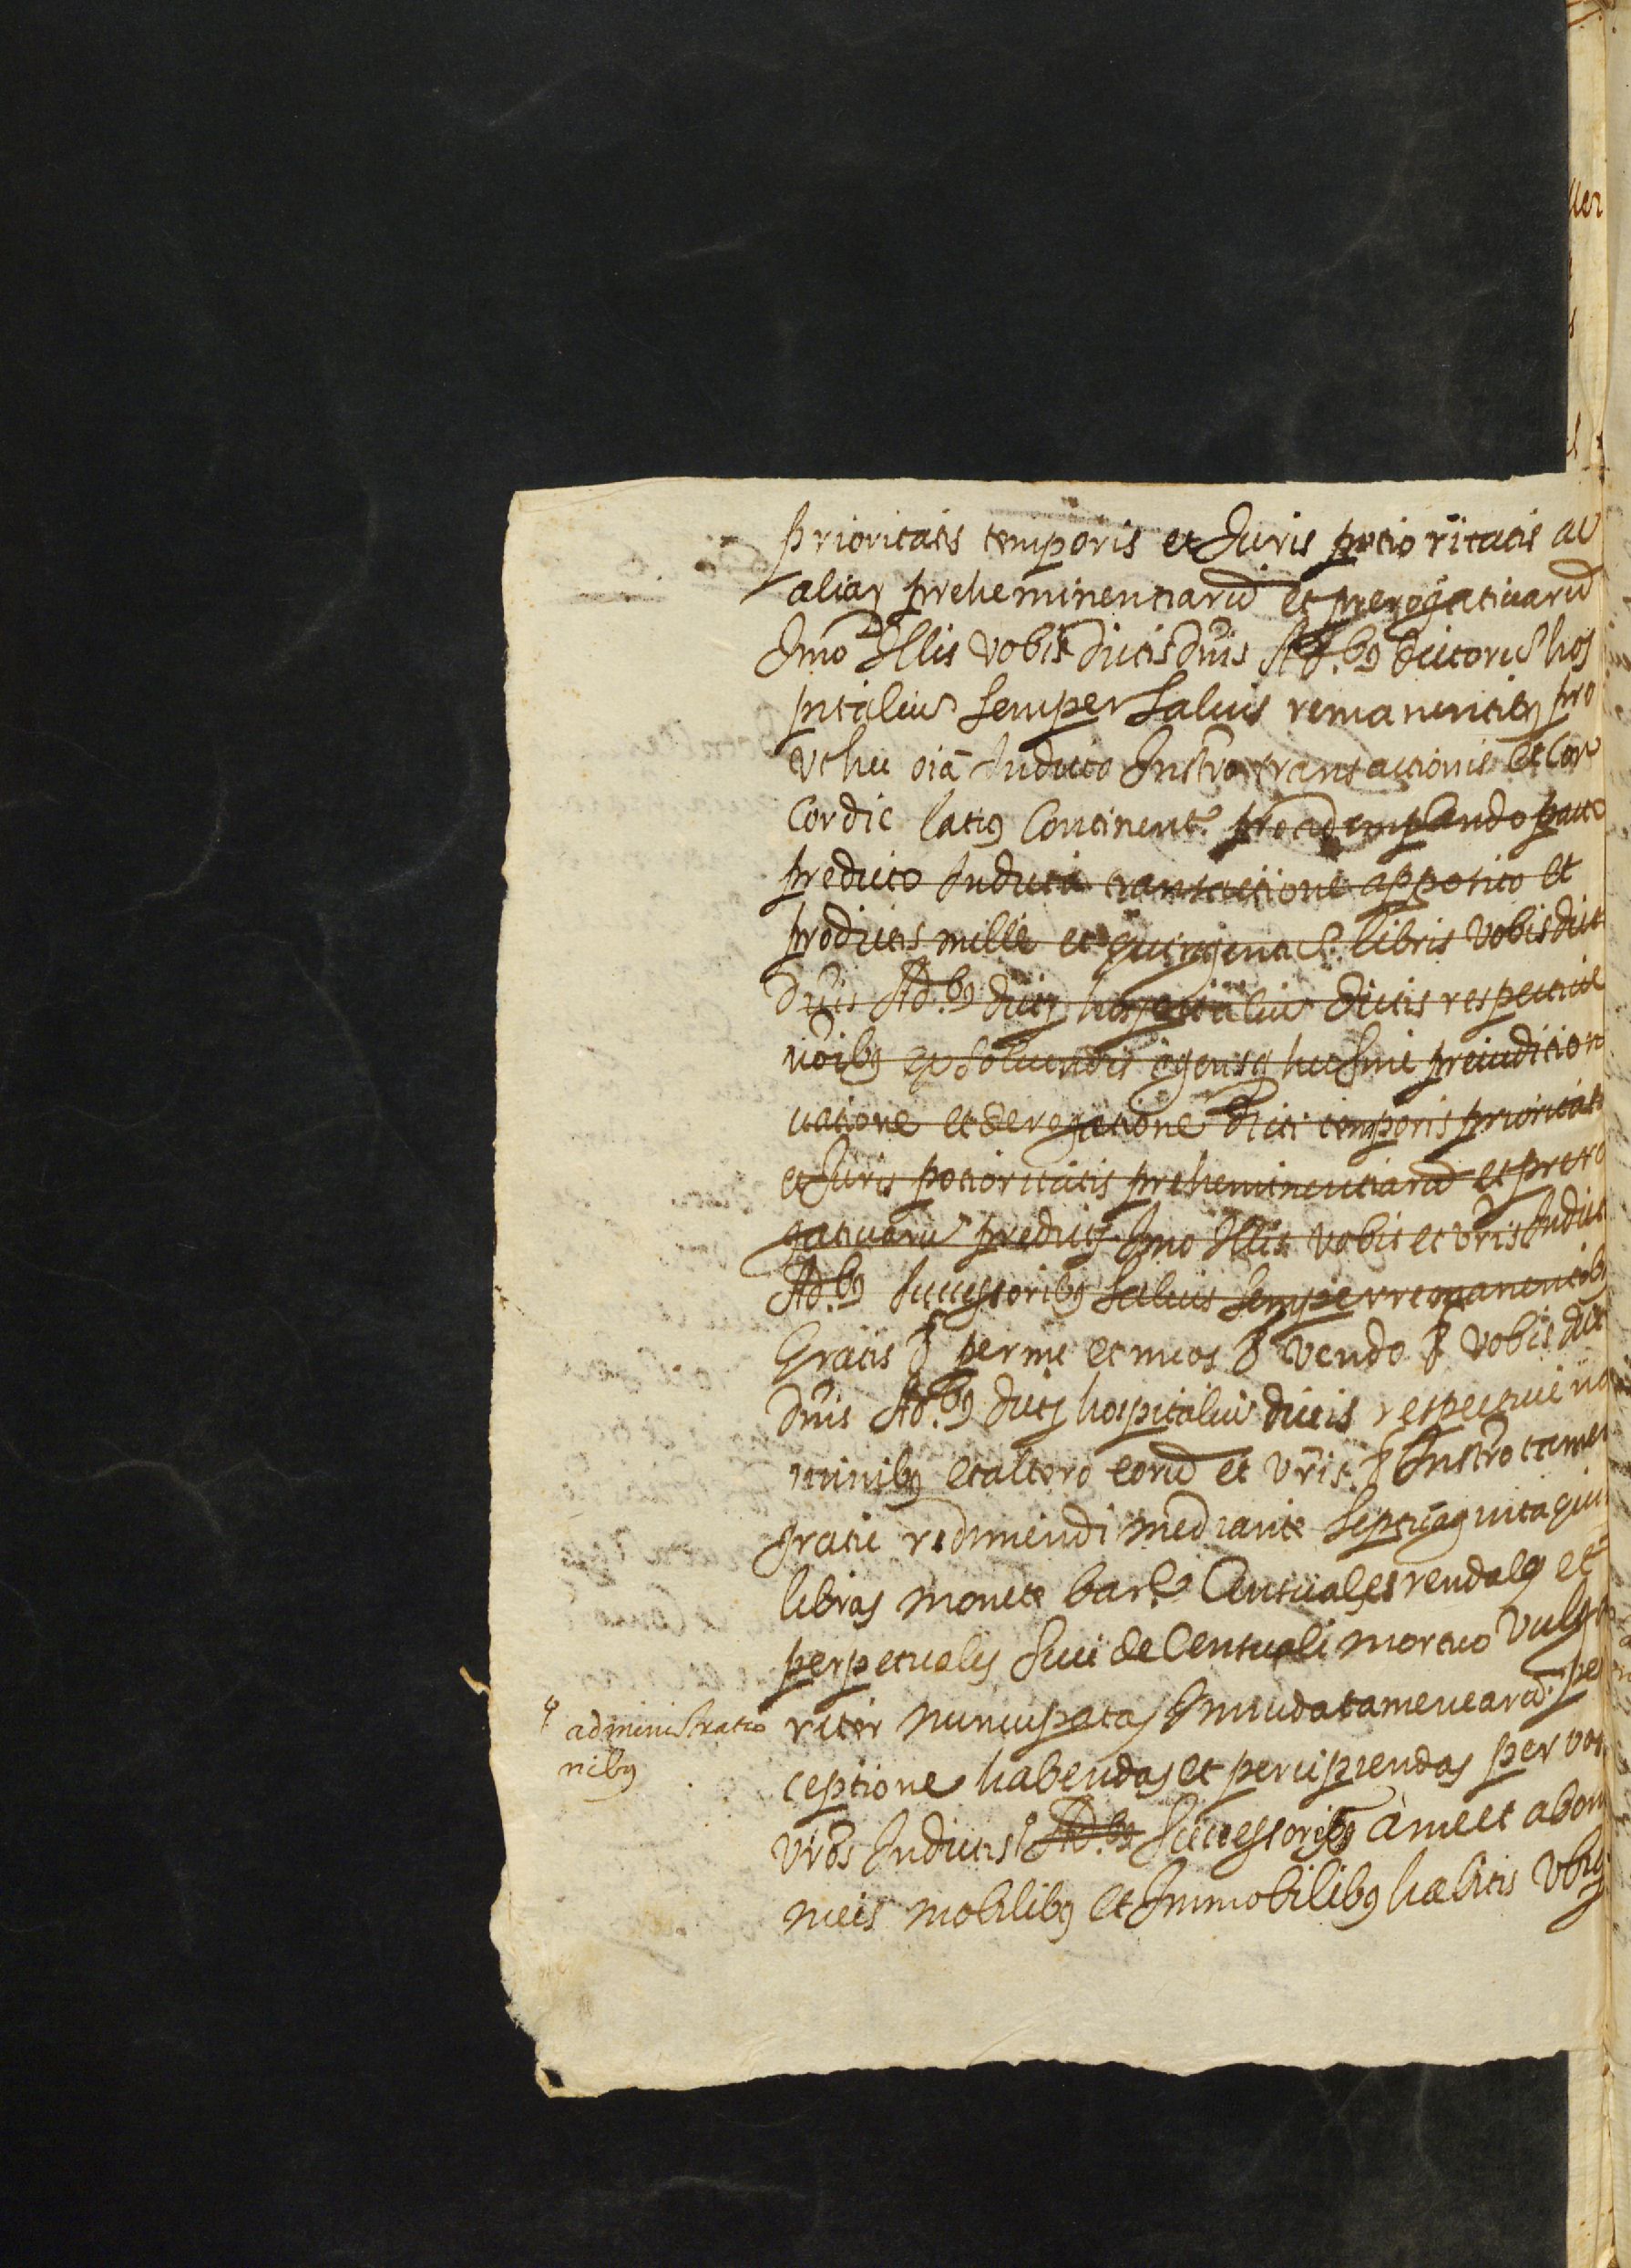 prioritatis temporis et Juris potioritatis ac
aliarꝝ preheminentiarũ et prerogativarũ
Imo Illis vobis dictis dñis Ad.bꝰ dictorũ hos
pitaliũ semper salvis remanentibꝰ pro
ut hec oiã In dicto Instrõ transactionis et Con
cordie latiꝰ Continent.r pro adimplendo pacto
predicto In dicta transactione apposito et
pro dictis mille et quingentas libris vobis dict
dñis Ad.bꝰ dictꝝ hospitaliũ dictis respective
noĩbꝰ exsolvendis
vatione et derogatione dicti temporis prioritatis
et Juris potioritatis preheminentiarũ et prero
gativarũ predictꝝ Imo Illis vobis et vris In dict
Ad.bꝰ successoribꝰ salvis semper remanentibꝰ
Gratis & per me et meos & vendo & vobis dict
dñis Ad.bꝰ dictꝝ hospitaliũ dictis respective no
minibꝰ et altero eorũ et vris & Instrõ tamen
gratie redimendi mediante septuaginta quin
libras monete bar.e Censuales rendales et
perpetuales sive de Censuali mortuo vulga
riter nuncupatas & nuda tamen earũ per
ceptione habendas et percipiendas per vos
vros In dictis Ad.bꝰ successoribꝰ a me et a bonis
meis mobilibꝰ et Immobilibꝰ habitis Ubiqꝫ
administratio
nibꝰ